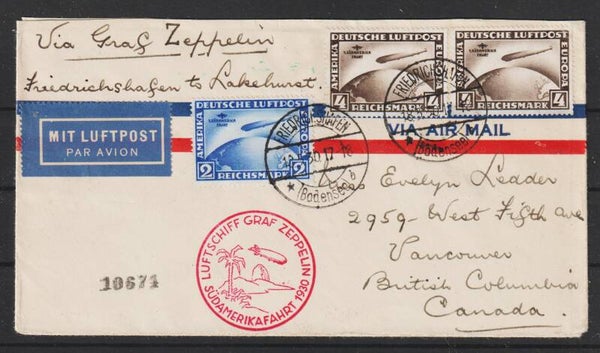 Via Graf Zeppelin
Friedrichshafen to Lakehurst.
MIT LUFTPOST
PAR AVION
DEUTSCHE LUFTPOST
AMERIKA
EUROPA
SÜDAMERIKA
FAHRT
2 REICHSMARK 2
DEUTSCHE LUFTPOST
AMERIKA
EUROPA
SÜDAMERIKA
FAHRT
4 REICHSMARK 4
DEUTSCHE LUFTPOST
AMERIKA
EUROPA
SÜDAMERIKA
FAHRT
4 REICHSMARK 4
FRIEDRICHSHAFEN
30 17-18
b
(Bodensee)
FRIEDRICHSHAFEN
(Bodensee)
VIA AIR MAIL
Miss Evelyn Leader
2959 - West Fifth ave
Vancouver
British Columbia
Canada.
LUFTSCHIFF GRAF ZEPPELIN
SÜDAMERIKAFAHRT 1930
10671